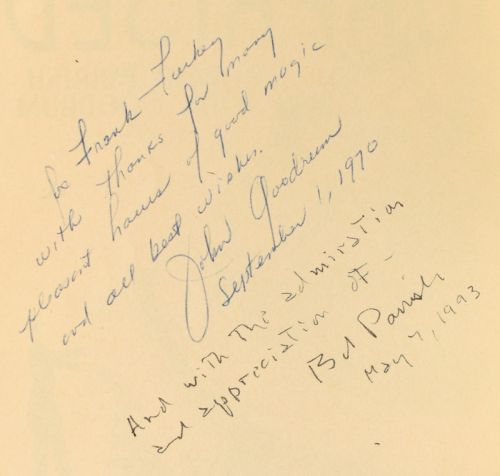 Frank Turkey
with thanks for many
pleasant hours of good magic
and all best wishes.
John Goodrum
September 1, 1970
And with the admiration
and appreciation of -
Bob Parrish
May 7, 1993